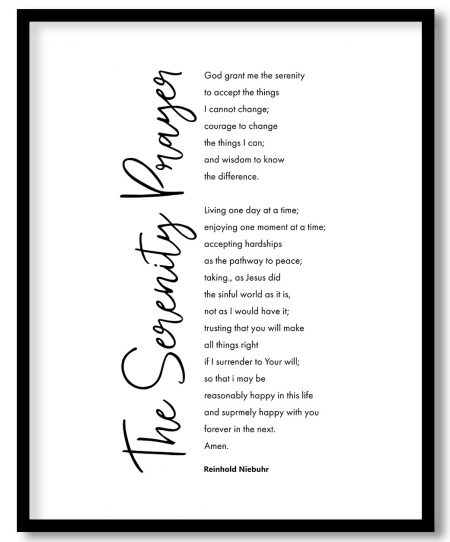 The Serenity Prayer
God grant me the serenity
to accept the things
I cannot change;
courage to change
the things I can;
and wisdom to know
the difference.
Living one day at a time;
enjoying one moment at a time;
accepting hardships
as the pathway to peace;
taking., as Jesus did
the sinful world as it is,
not as I would have it;
trusting that you will make
all things right
if I surrender to Your will;
so that i may be
reasonably happy in this life
and suprmely happy with you
forever in the next.
Amen.
Reinhold Niebuhr